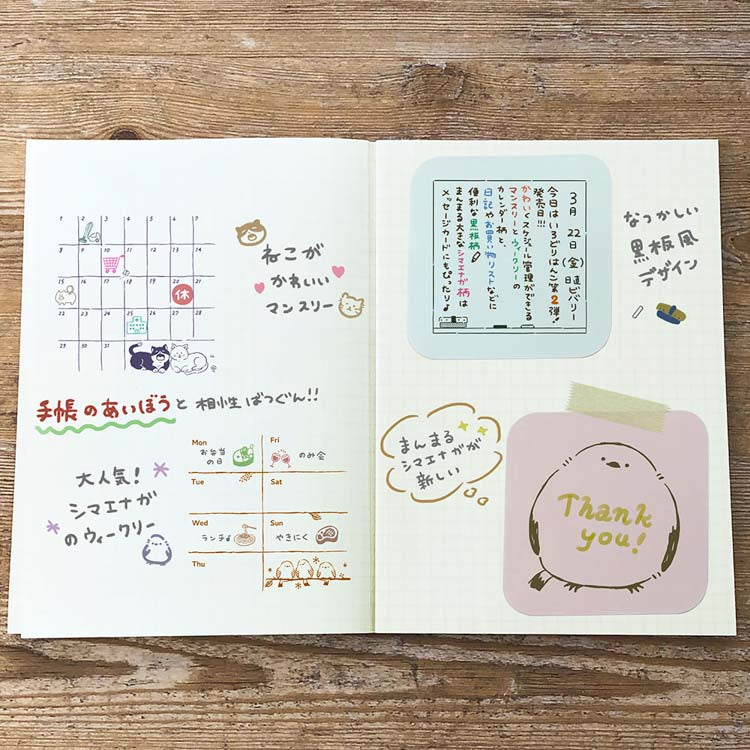 1 2 3 4 5 6 7
8 9 10 11 12 13 14
15 16 17 18 19 20 21
休
22 23 24 25 26 27 28
29 30 31
ねこが
かわいい
マンスリー
手帳のあいぼうと相性ばつぐん!!
大人気!
シマエナガ
のウィークリー
Mon お弁当の日
Fri のみ会
Tue
Sat
Wed ランチ♪
Sun やきにく
Thu
3月 22日(金) 日直 ビバリー
今日はいろどりはんこ第2弾!
発売日!!!
かわいくスケジュール管理ができる
マンスリーとウィークリーの
カレンダー柄と、
日記やお買い物リストなどに
便利な黒板柄
まんまる大きなシマエナガ柄は
メッセージカードにもぴったり♪
なつかしい
黒板風
デザイン
まんまる
シマエナガが
新しい
Thank
you!